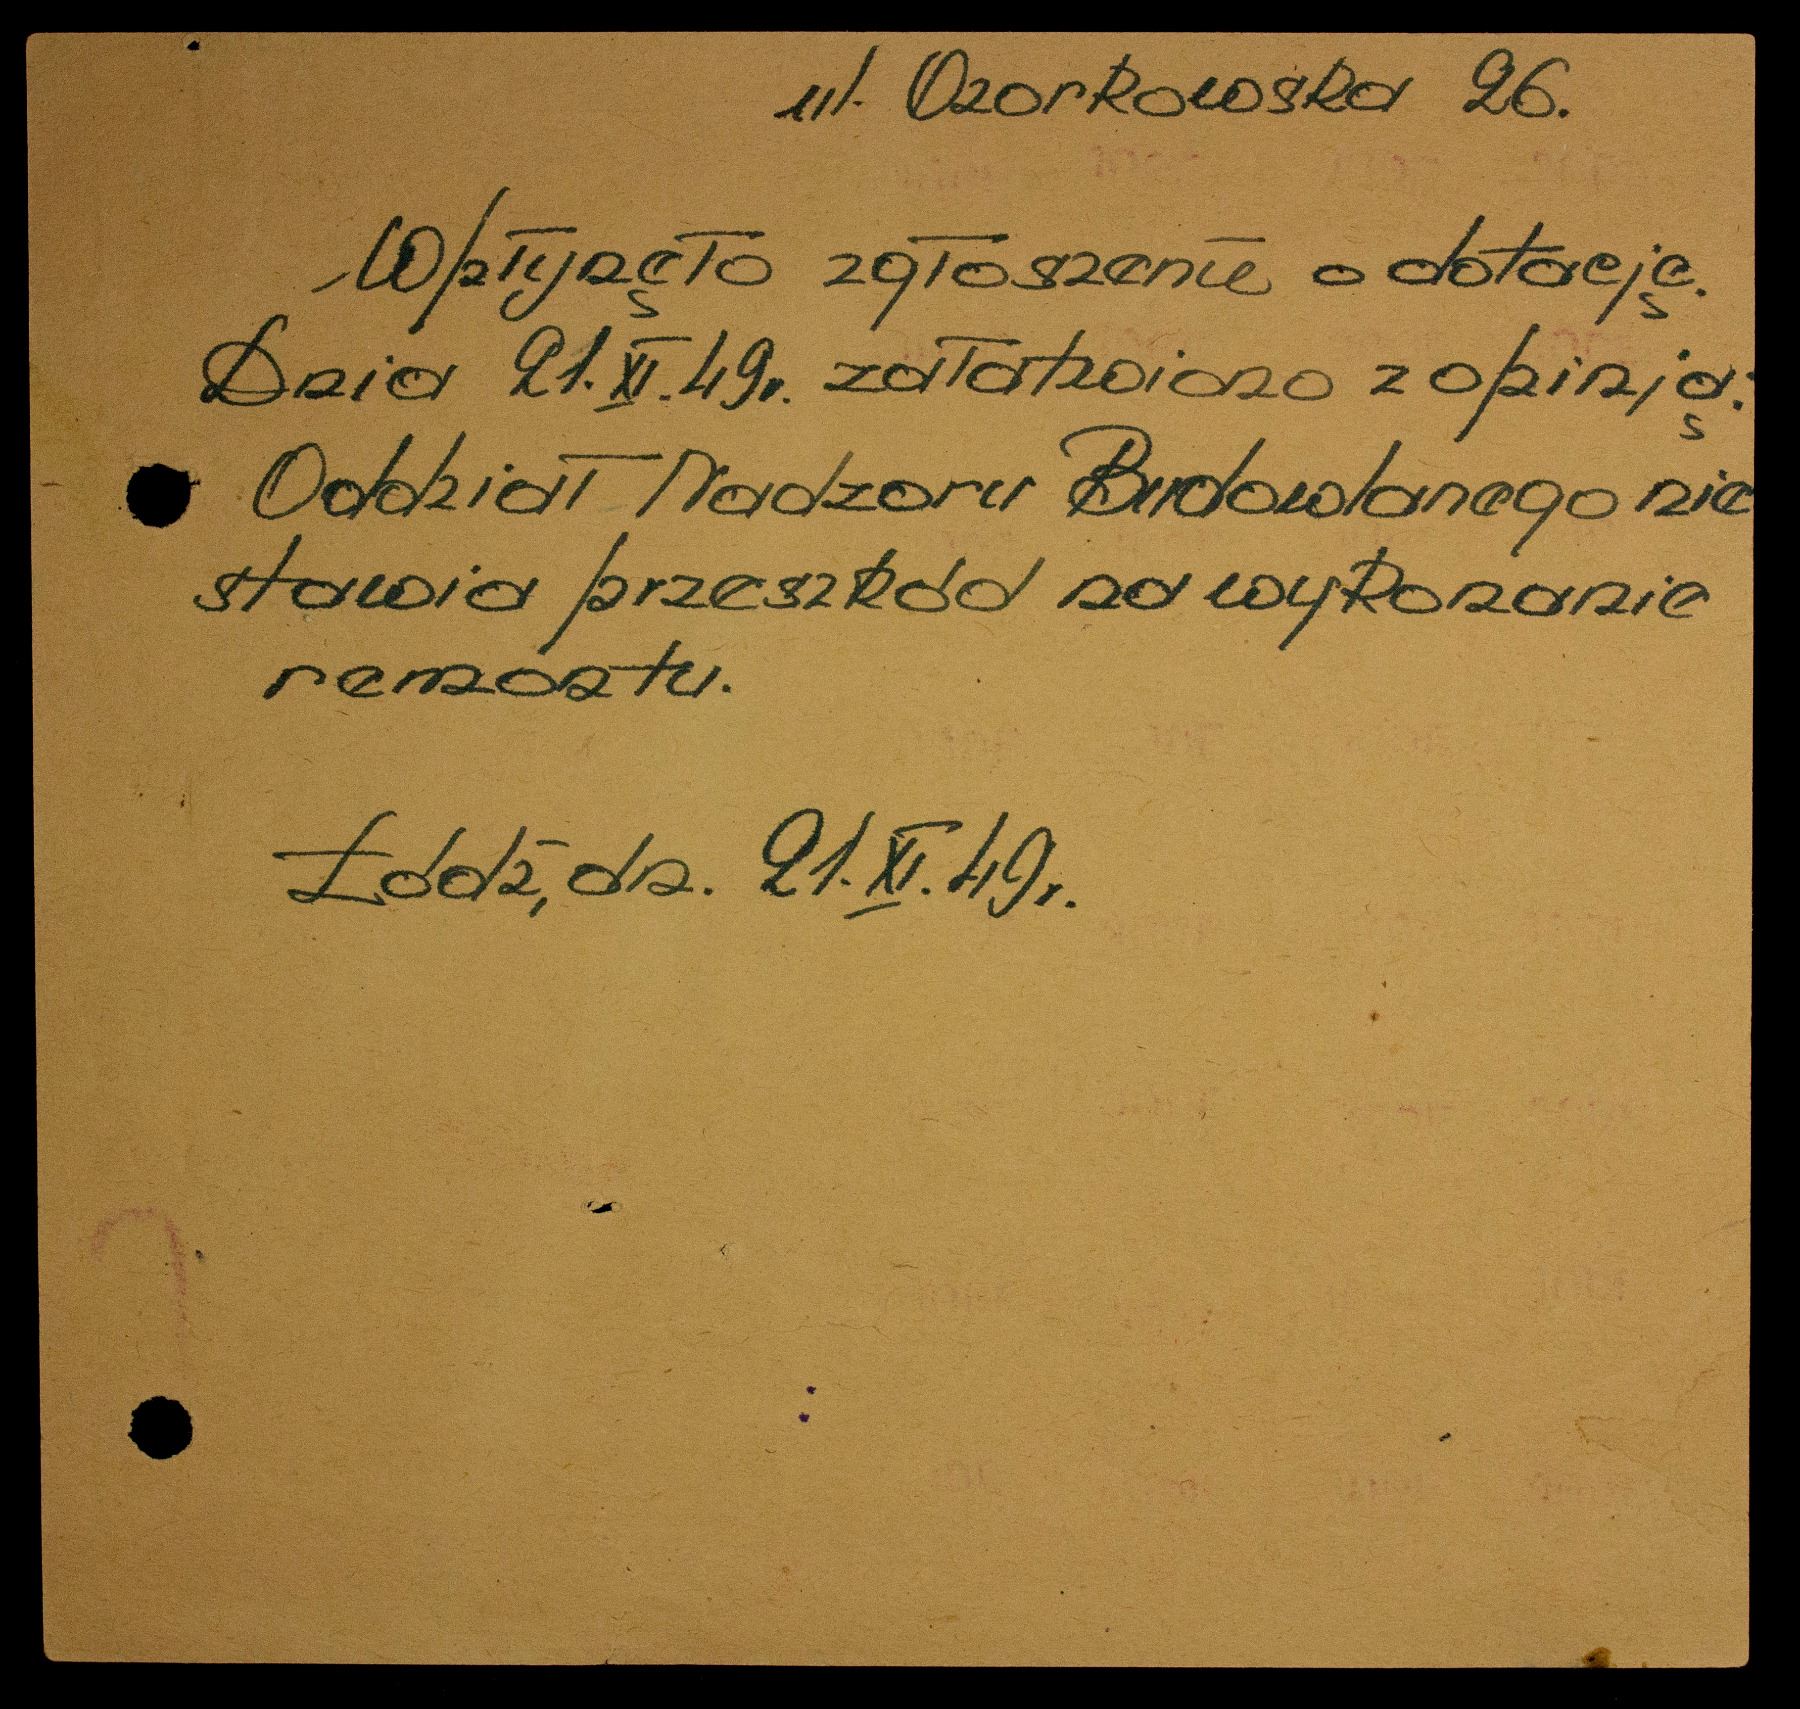 ul. Ozorkowska 26.
Wpłynęło zgłoszenie o dotację.
Dnia 21.XI.49r. załatwiono z opinją:
Oddział Nadzoru Budowlanego nie
stawia przeszkód na wykonanie
remontu.
Łódź, dn. 21.XI.49r.